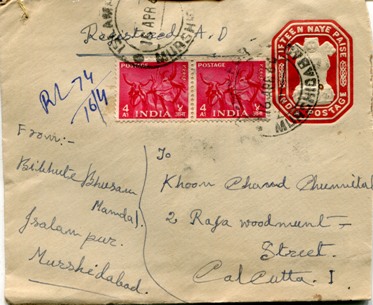 Registered A.D
FIFTEEN NAYE PAISE
POSTAGE
RL-74
16/4
POSTAGE
4 As
INDIA
POSTAGE
4 As
INDIA
From:-
Bibhute Bhusan
Mandal.
Isalampur.
Murshidabad.
To
Khoon Chand Chunnilal
2 Raja woodmunt-
Street.
Calcutta. 1